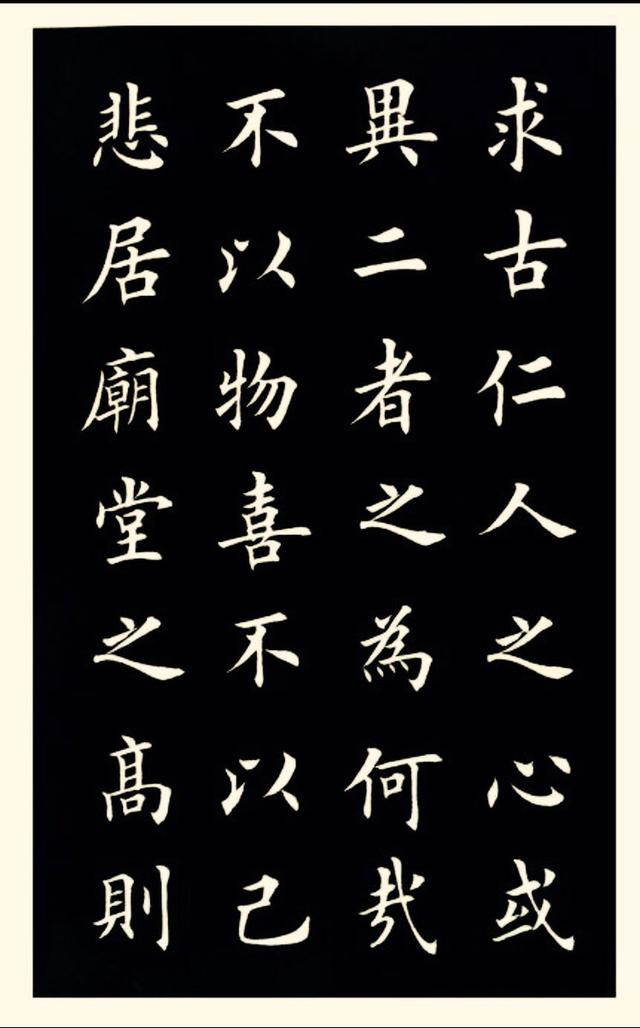 求古仁人之心或
異二者之為何哉
不以物喜不以己
悲居廟堂之高則